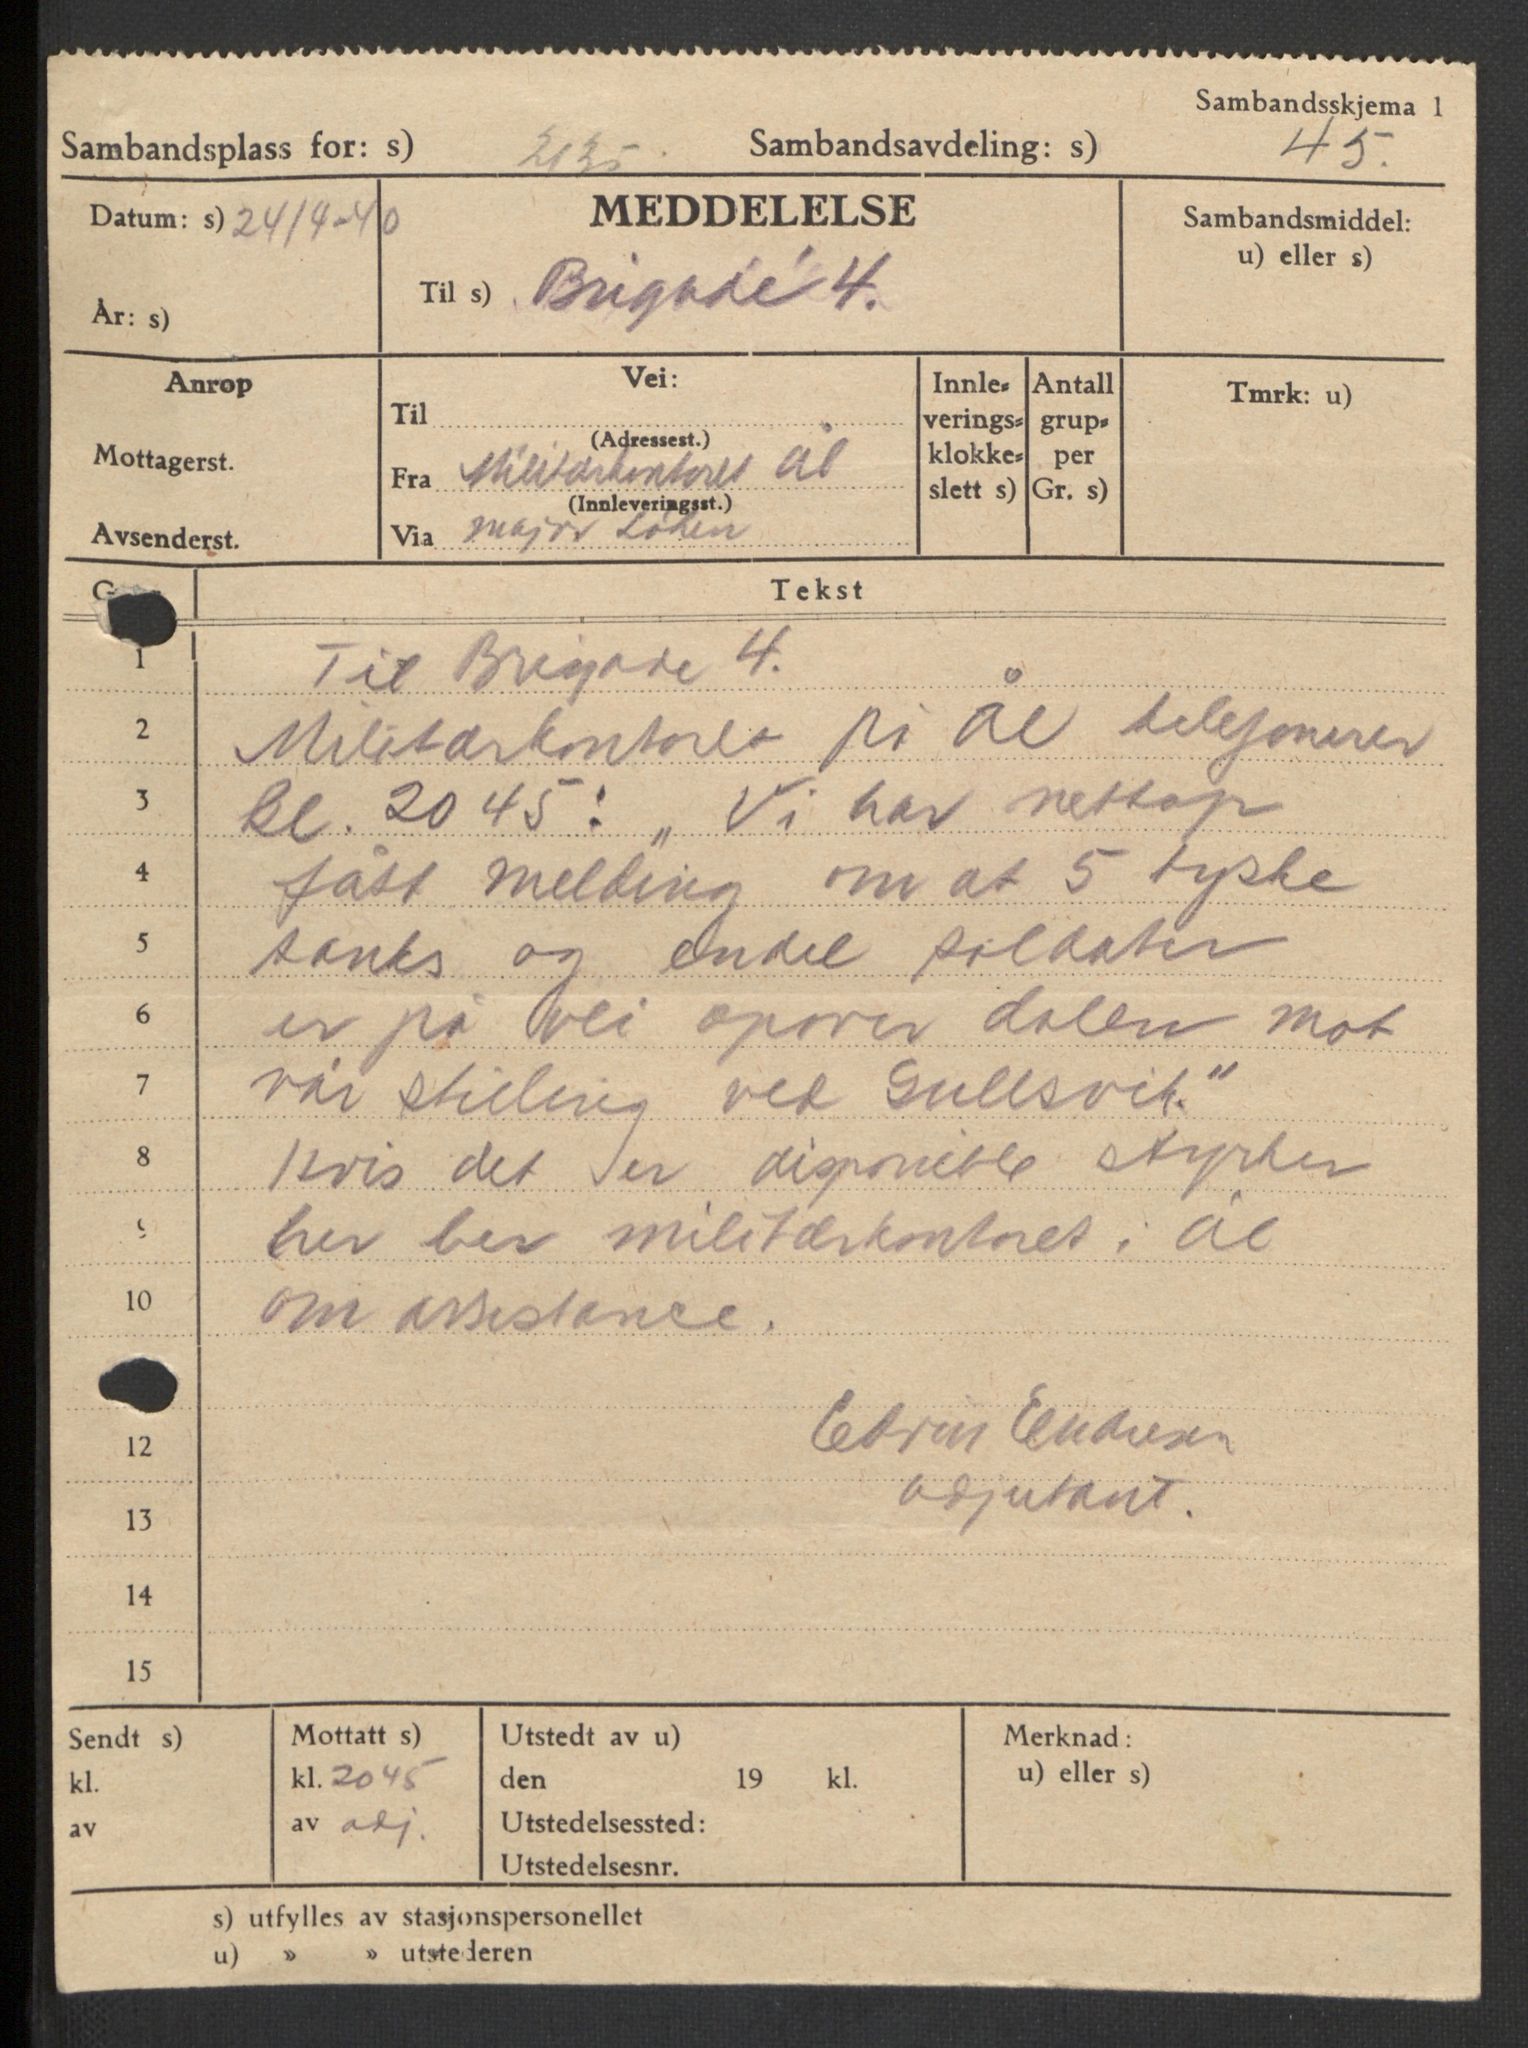 Sambandsskjema 1
Sambandsplass for: s) 2135 Sambandsavdeling: s) 45.
Datum: s) 24/4-40
År: s)
MEDDELELSE
Til s) Brigade 4.
Sambandsmiddel:
u) eller s)
Anrop
Mottagerst.
Avsenderst.
Vei:
Til
(Adressest.)
Fra Militærkontoret Ål
(Innleveringsst.)
Via major
Innle-
verings-
klokke-
slett s)
Antall
grup-
per
Gr. s)
Tmrk: u)
Tekst
1 Til Brigade 4.
2 Militærkontoret på Ål telefonerer
3 kl. 2045: „Vi har nettop
4 fått melding om at 5 tyske
5 tanks og endel soldater
6 er på vei opover dalen mot
7 vår stilling ved Gullsvik."
8 Hvis det er disponible styrker
9 her ber militærkontoret i Ål
10 om assistance.
12 Edvin Endresen
13 adjutant.
14
15
Sendt s)
kl.
av
Mottatt s)
kl. 2045
av adj.
Utstedt av u)
den 19 kl.
Utstedelsessted:
Utstedelsesnr.
Merknad:
u) eller s)
s) utfylles av stasjonspersonellet
u) » » utstederen